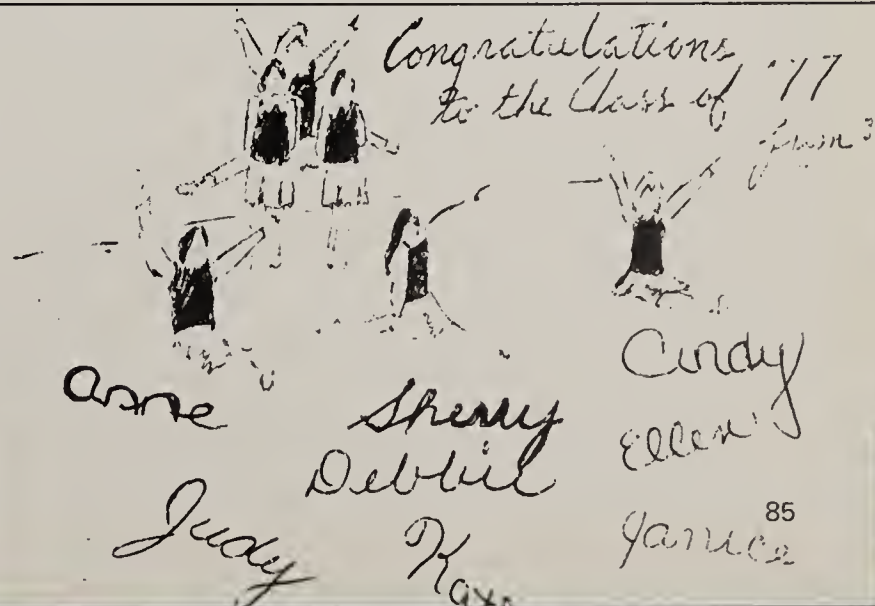 Congratulations
to the Class of '77
from
Anne
Sherry
Cindy
Debbie
Ellen
Judy
Janice
85